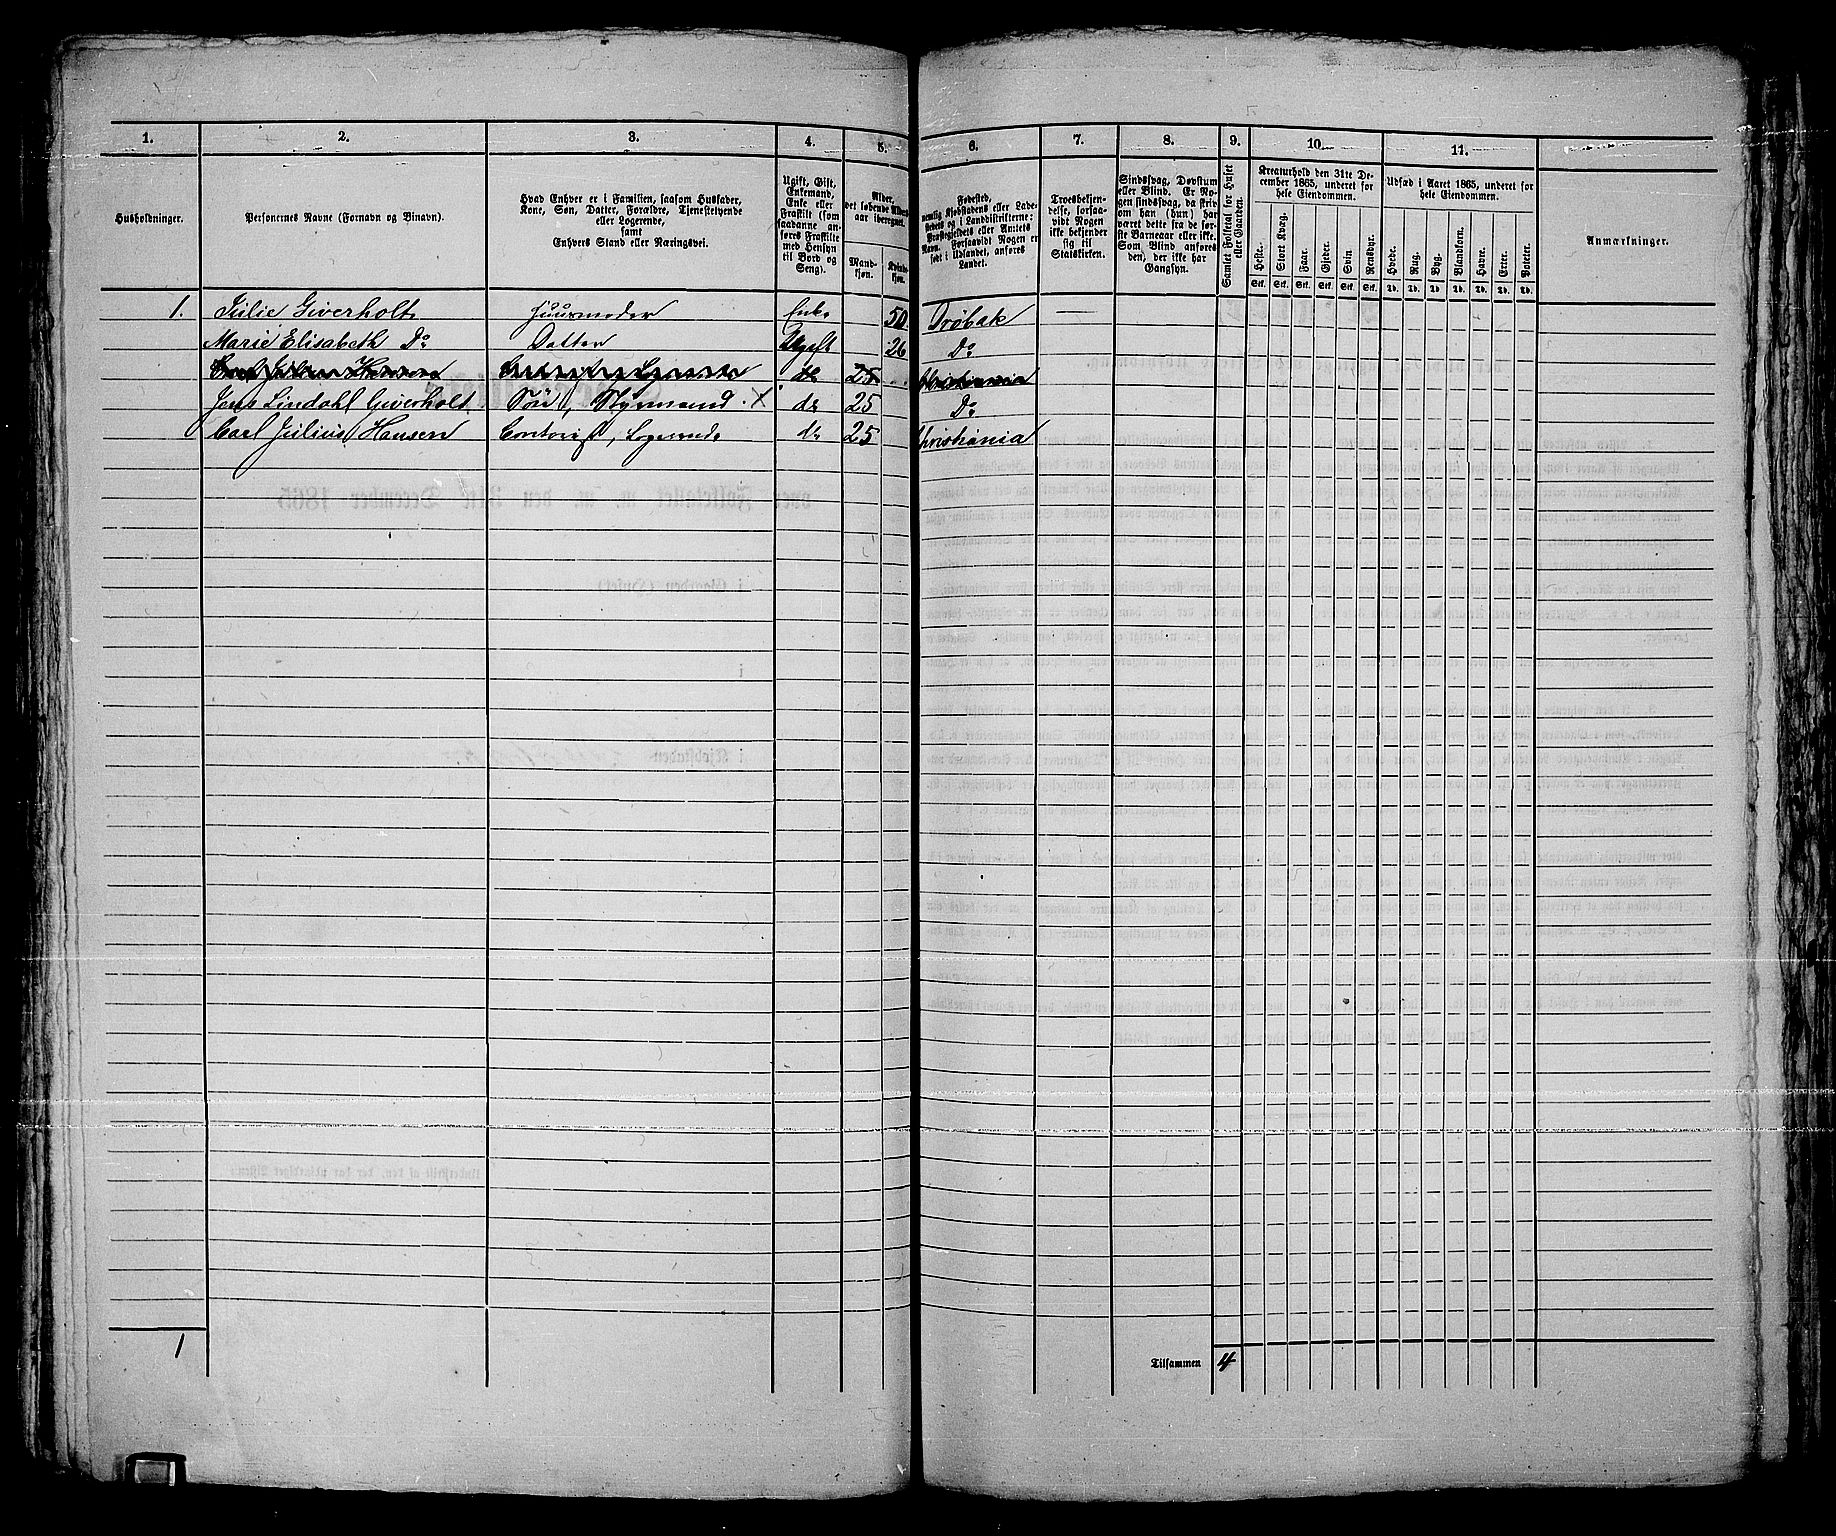 1. 2. 3. 4. 5. 6. 7. 8. 9. 10. 11.
Husholdninger.
Personernes Navne (Fornavn og Binavn).
Hvad Enhver er i Familien, saasom Husfader,
Kone, Søn, Datter, Forældre, Tjenestetyende
eller Logerende,
samt
Enhvers Stand eller Næringsvei.
Ugift, Gift,
Enkemand,
Enke eller
Fraskilt (som
saadanne an-
føres Fraskilte
med Hensyn
til Bord og
Seng).
Alder,
det løbende Alders-
aar iberegnet.
Mand-
kjøn.
Kvinde-
kjøn.
Fødested,
nemlig Kjøbstadens eller Lade-
stedets og i Landdistrikterne:
Præstegjeldets eller Amtets
Navn. Forsaavidt Nogen er
født i Udlandet, anføres
Landet.
Troesbekjen-
delse, forsaa-
vidt Nogen
ikke bekjender
sig til
Statskirken.
Sindssvag, Døvstum
eller Blind. Er No-
gen sindssvag, da skriv
om han (hun) har
været dette fra de før-
ste Barneaar eller ikke.
Som Blind anføres
den, der ikke har
Gangsyn.
Samlet Folketal for Huset
eller Gaarden.
Kreaturhold den 31te De-
cember 1865, underet for
hele Eiendommen.
Heste. Stort Kvæg. Faar. Gjeder. Svin. Rensdyr.
Stk. Stk. Stk. Stk. Stk. Stk.
Udsæd i Aaret 1865, underet for
hele Eiendommen.
Hvede. Rug. Byg. Blandkorn. Havre. Erter. Poteter.
Td. Td. Td. Td. Td. Td. Td.
Anmærkninger.
1. Julie Giverholt Huusmoder Enke 50 Drøbak
Marie Elisabeth Do Datter Ugift 26 Do
Carl Julius Hansen do 25 Christiania
Jens Lindahl Giverholt Søn, Styrmand X do 25 Do
Carl Julius Hansen Contorist, Logerende do 25 Christiania
1 Tilsammen 4